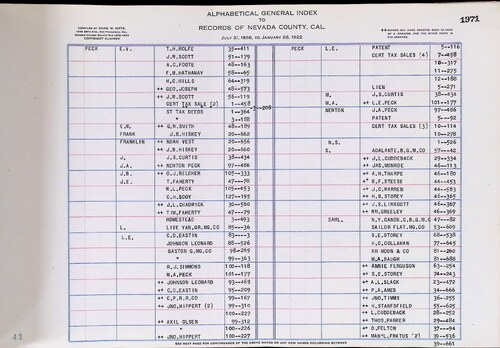 ALPHABETICAL GENERAL INDEX
TO
RECORDS OF NEVADA COUNTY, CAL.
JULY 31, 1856, TO JANUARY 28, 1922
1971
PECK E.V. T.H. ROLFE 39--411
J.W. SCOTT 51--179
A.C. FOOTE 48--163
F.W. HATHEWAY 58--65
H.C. MILLS 64--319
++ GEO. JOSEPH 48--573
++ J.W. SCOTT 56--119
CERT TAX SALE (2) 1--458 2--208
ST TAX DEEDS 1--364
" 3--188
E.W. ++ G.W. SMITH 48--189
FRANK J.B. HISKEY 20--662
FRANKLIN ++ NOAH VEST 20--656
++ J.B. HISKEY 20--660
J. J.S. CURTIS 38--434
J.A. ++ NEWTON PECK 97--486
J.B. ++ O.J. BELCHER 105--333
J.E. T. FAHERTY 47--78
W.L. PECK 105--453
C.H. SODY 127--195
++ J.L. CHADWICK 30--560
++ TIM. FAHERTY 47--79
HOMESTEAD 3--493
L. LIVE YAN. GR. MG. CO 85--36
L.E. C.D. EASTIN 83---3
JOHNSON LEONARD 88--526
GASTON G. MG. CO 98--265
" 99--363
R.J. SIMMONS 100--118
W.A. PECK 101--177
++ JOHNSON LEONARD 93--469
++ C.D. EASTIN 95--209
++ C.P.R.R. CO 99--167
++ JNO. HIPPERT (2) 99--310
100--227
++ AXIL OLSEN 99-312
100--226
++ JNO. HIPPERT 100--227
PECK L.E. PATENT 5--116
CERT TAX SALES (4) 7--458
10--317
11--275
12--188
LIEN 5--271
M. J.S. CURTIS 38--434
M.A. ++ L.E. PECK 101--177
NEWTON J.A. PECK 97--486
PATENT 5--92
CERT TAX SALES (3) 10--114
10--278
N.S. 1--526
S. ADALANTE. B.G. CO 57--42
++ J.L. CUDDEBACK 29--334
++ JAS. MONROE 46--113
++ A.W. THARPE 46--180
++ R.F. STEESE 46--453
++ J.C. WARREN 46--583
++ H.B. STOREY 46--365
++ J.S. LINSCOTT 46--367
++ WM. GREELEY 46--369
SAML. N.Y. CANON. C.B.G.M.C 47--82
SAILOR FLAT. MG. CO 53--609
S.E. STOREY 68--538
H.C. COLLAHAN 77--645
AH HOON & CO 81--260
M.A. BAUGH 81--688
++ ANNIE FERGUSON 63--254
++ S.E. STOREY 74--243
++ A.L. SLACK 23--472
++ P.A. AMES 34--666
++ JNO. THIMS 34--255
++ H. STANSFIELD 55--625
++ L. CUDDEBACK 28--252
++ THOS. PARKER 29--484
++ D. FELTON 37--94
++ MAN'L. FRATUS (2) 39--536
39--661
43